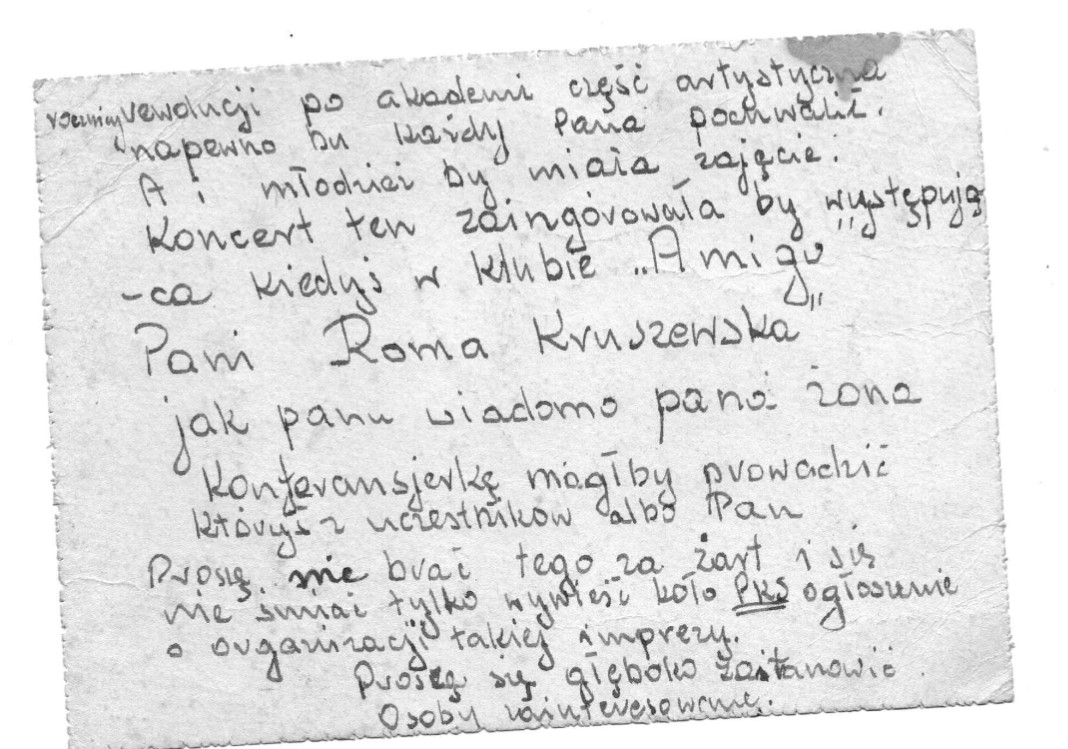 rocznicy rewolucji po akademi część artystyczna
napewno bu każdy Pana pochwalił.
A i młodzież by miała zajęcie.
Koncert ten zaingórowała by „występują
-ca kiedyś w klubie „Amigo"
Pani Roma Kruszewska"
jak panu wiadomo pana żona
Konferansjerkę mógłby prowadzić
któryś z uczestników albo Pan
Proszę nie brać tego za żart i się
nie śmiać tylko wywieść koło PKS ogłoszenie
o organizacji takiej imprezy.
Proszę się głęboko zastanowić
Osoby zainteresowane.